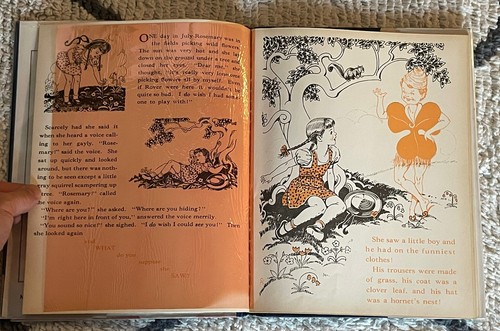 ONE day in July Rosemary was in
the fields picking wild flowers.
The sun was very hot and she lay
down on the ground under a tree and
closed her eyes. "Dear me," she
thought, "it's really very lonesome
picking flowers all by myself. Even
if Rover were here it wouldn't be
quite so bad. I do wish I had some
one to play with!"
Scarcely had she said it
when she heard a voice call-
ing to her gayly. "Rose-
mary!" said the voice. She
sat up quickly and looked
around, but there was noth-
ing to be seen except a little
gray squirrel scampering up
tree. "Rosemary!" called
the voice again.
"Where are you?" she asked. "Where are you hiding?"
"I'm right here in front of you," answered the voice merrily.
"You sound so nice!" she sighed. "I do wish I could see you!" Then
she looked again
and
WHAT
do you
suppose
she
SAW?
She saw a little boy and
he had on the funniest
clothes!
His trousers were made
of grass, his coat was a
clover leaf, and his hat
was a hornet's nest!